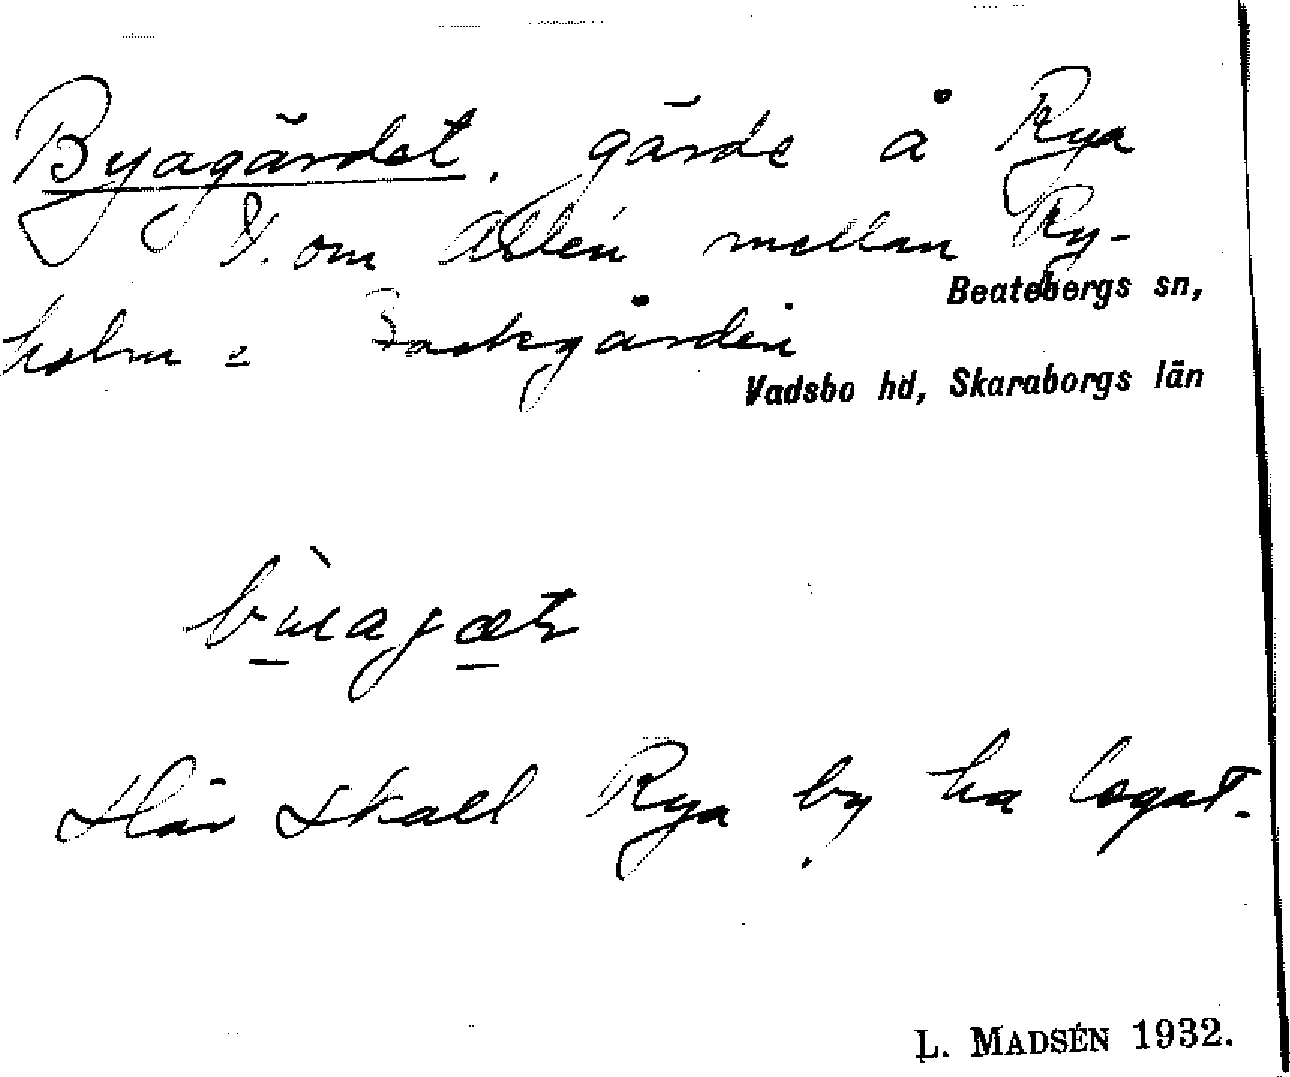 Byagärdet. gärde å Rya
V. om Allén mellan Ry-
Beatebergs sn,
holm o Backgården
Vadsbo hd, Skaraborgs län
Här skall Rya by ha legat.
L. MADSÉN 1932.